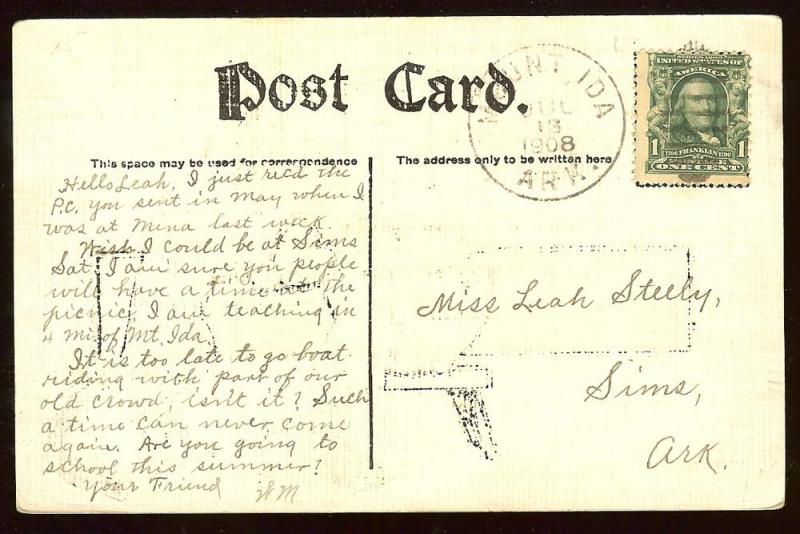 Post Card.
MOUNT IDA
JUL
13
1908
ARK.
SERIES 1902
UNITED STATES OF
AMERICA
1 1706 FRANKLIN 1790 1
ONE CENT
This space may be used for correspondence
The address only to be written here
Hello Leah, I just rec'd the
P.C. you sent in May when I
was at Mena last week
Wish I could be at Sims
Sat. I am sure you people
will have a time at the
picnic. I am teaching in
4 mi. of Mt. Ida.
It is too late to go boat
riding with part of our
old crowd, isn't it? Such
a time can never come
again. Are you going to
school this summer?
Your Friend
Miss Leah Steely,
Sims,
Ark.